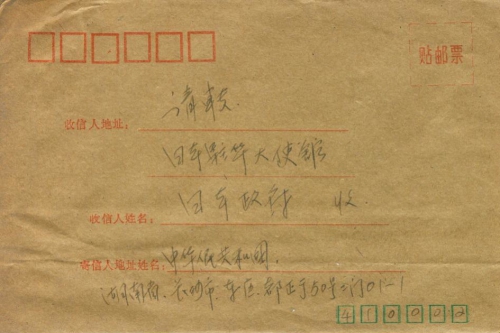 贴邮票
请转
收信人地址:
日本驻华大使馆
日本政府 收
收信人姓名:
寄信人地址姓名: 中华人民共和国
湖南省、长沙市、东区、都正街50号
410002